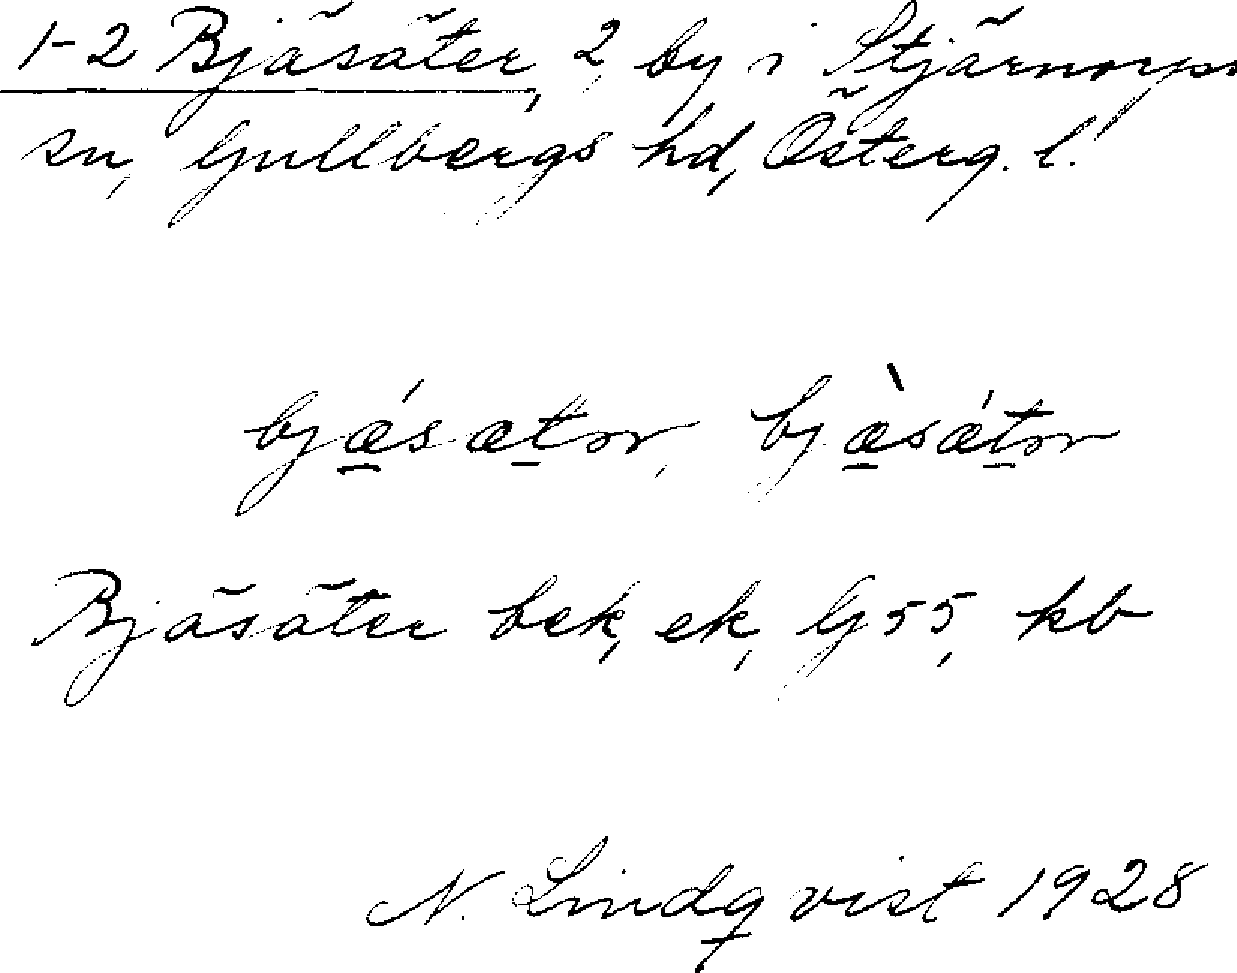 1-2 Bjäsäter, 2, by i Stjärnorps
sn, Gullbergs hd, Österg. l.
bjǽsætər, bjæ̀sǽtər
Bjäsäter bek, ek, G55, kb
N. Lindqvist 1928